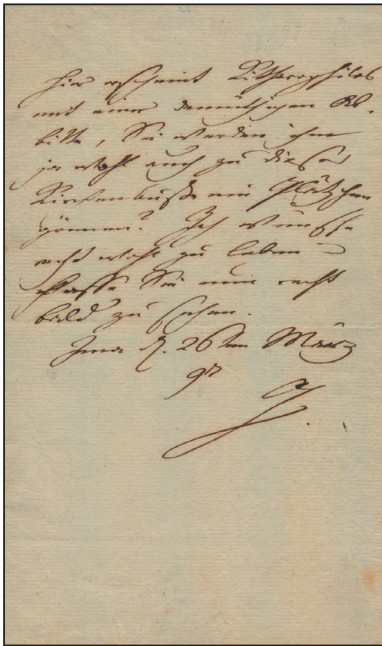 Hier erscheint Kitharophilos
mit einer demüthigen Ab¬
bitte, Sie werden ihm
ja wohl auch zu dieser
Kirchenbuße ein Plätzchen
gönnen? Ich wünsche
recht wohl zu leben u
hoffe Sie nun recht
bald zu sehen.
Jena d. 26ten März
97